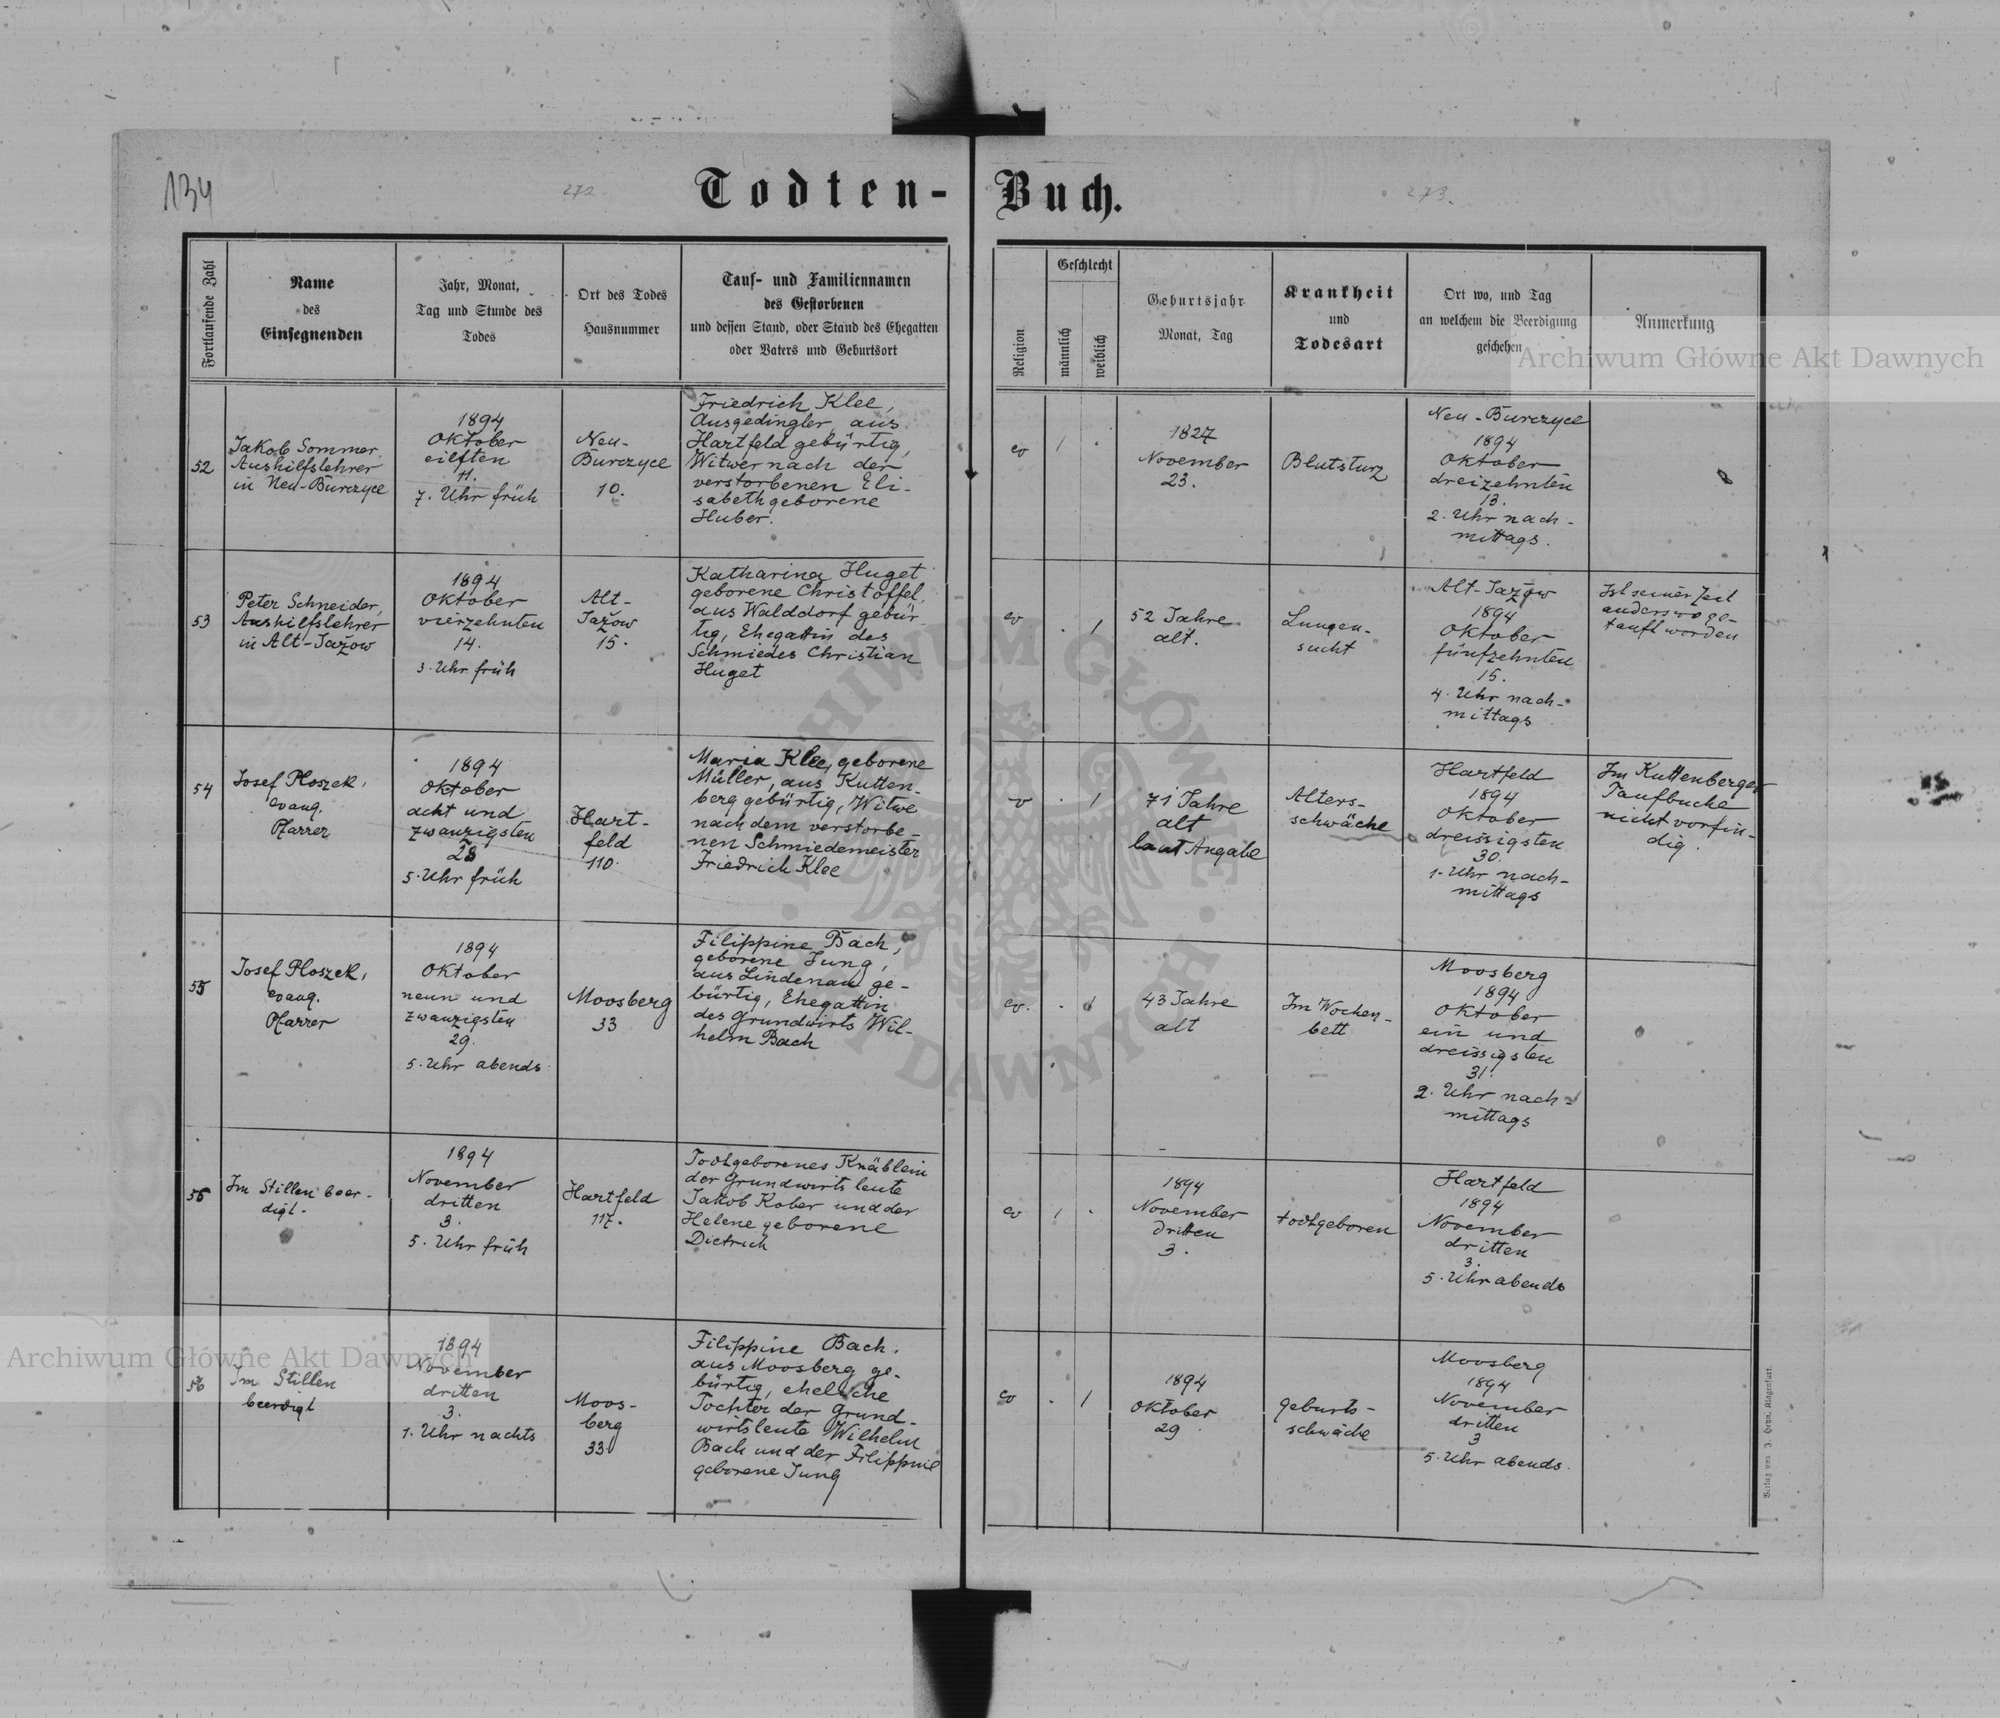 134
272
Todten-Buch.
273.
Fortlaufende Zahl
Name
des
Einsegnenden
Jahr, Monat,
Tag und Stunde des
Todes
Ort des Todes
Hausnummer
Tauf- und Familiennamen
des Gestorbenen
und dessen Stand, oder Stand des Ehegatten
oder Vaters und Geburtsort
Religion
Geschlecht
männlich
weiblich
Geburtsjahr
Monat, Tag
Krankheit
und
Todesart
Ort wo, und Tag
an welchem die Beerdigung
geschehen
Anmerkung
Archiwum Główne Akt Dawnych
52
Jakob Sommer,
Aushilfslehrer
in Neu-Burczyce
1894
Oktober
eilften
11.
7. Uhr früh
Neu-
Burczyce
10.
Friedrich Klee,
Ausgedingler, aus
Hartfeld gebürtig,
Witwer nach der
verstorbenen Eli-
sabeth geborene
Huber.
ev
1
.
1827
November
23.
Blutsturz
Neu-Burczyce
1894
Oktober
dreizehnten
13.
2. Uhr nach-
mittags.
53
Peter Schneider,
Aushilfslehrer
in Alt-Jažow
1894
Oktober
vierzehnten
14.
3. Uhr früh
Alt-
Jažow
15.
Katharina Huget
geborene Christoffel,
aus Walddorf gebür-
tig, Ehegattin des
Schmiedes Christian
Huget
ev
.
1
52 Jahre
alt.
Lungen-
sucht
Alt-Jažow
1894
Oktober
fünfzehnten
15.
4. Uhr nach-
mittags
Ist seiner Zeit
anderswo ge-
tauft worden
54
Josef Ploszek,
evang.
Pfarrer
1894
Oktober
acht und
zwanzigsten
28
5. Uhr früh
Hart-
feld
110.
Maria Klee, geborene
Müller, aus Kutten-
berg gebürtig, Witwe
nach dem verstorbe-
nen Schmiedemeister
Friedrich Klee
.
1
71 Jahre
alt
laut Angabe
Alters-
schwäche
Hartfeld
1894
Oktober
dreissigsten
30.
1. Uhr nach-
mittags
Im Kuttenberger
Taufbuche
nicht vorfin-
dig.
55
Josef Ploszek,
evang.
Pfarrer
1894
Oktober
neun und
zwanzigsten
29.
5. Uhr abends
Moosberg
33
Filippine Bach,
geborene Jung,
aus Lindenau ge-
bürtig, Ehegattin
des Grundwirts Wil-
helm Bach
ev.
.
1
43 Jahre
alt
Im Wochen-
bett
Moosberg
1894
Oktober
ein und
dreissigsten
31.
2. Uhr nach-
mittags
Im Stillen beer-
digt.
1894
November
dritten
3.
5. Uhr früh
Hartfeld
117.
Todtgeborenes Knäblein
der Grundwirtsleute
Jakob Kober und der
Helene geborene
Dietrich
ev
1
.
1894
November
dritten
3.
todtgeboren
Hartfeld
1894
November
dritten
3.
5. Uhr abends
Archiwum Główne Akt Dawnych
56
Im Stillen
beerdigt
1894
November
dritten
3.
1. Uhr nachts
Moos-
berg
33
Filippine Bach.
aus Moosberg ge-
bürtig, eheliche
Tochter der Grund-
wirtsleute Wilhelm
Bach und der Filippine
geborene Jung
ev
.
1
1894
Oktober
29
Geburts-
schwäche
Moosberg
1894
November
dritten
3
5. Uhr abends.
Verlag von J. Heyn, Klagenfurt.
ARCHIWUM GŁÓWNE AKT DAWNYCH